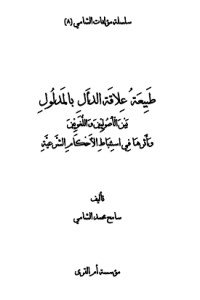 سلسلة مؤلفات الشامي (٨)
طَبِيعَةُ عِلَاقَةِ الدَّالِّ بِالمَدْلُولِ
بَيْنَ الأُصُولِيِّينَ وَاللُّغَوِيِّينَ
وَأَثَرُهَا فِي اسْتِنْبَاطِ الأَحْكَامِ الشَّرْعِيَّةِ
تأليف
سامح محمد الشامي
مؤسسة أم القرى